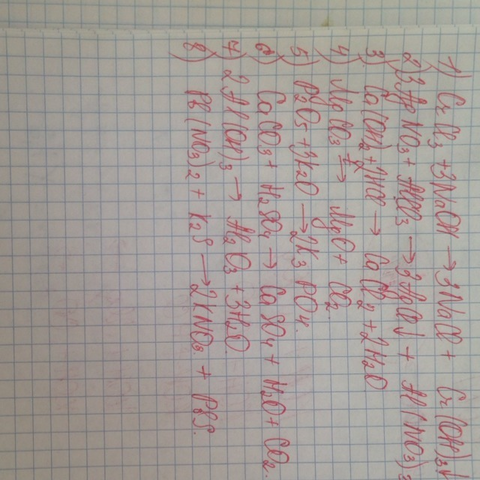 1) CrCl3 + 3NaOH → 3NaCl + Cr(OH)3↓
2) 3AgNO3 + AlCl3 → 3AgCl↓ + Al(NO3)3
3) Ca(OH)2 + 2HCl → CaCl2 + 2H2O
4) MgCO3 t→ MgO + CO2.
5) P2O5 + 3K2O → 2K3PO4.
6) CaCO3 + H2SO4 → CaSO4 + H2O + CO2.
7) 2Al(OH)3 → Al2O3 + 3H2O
8) Pb(NO3)2 + K2S → 2KNO3 + PbS.